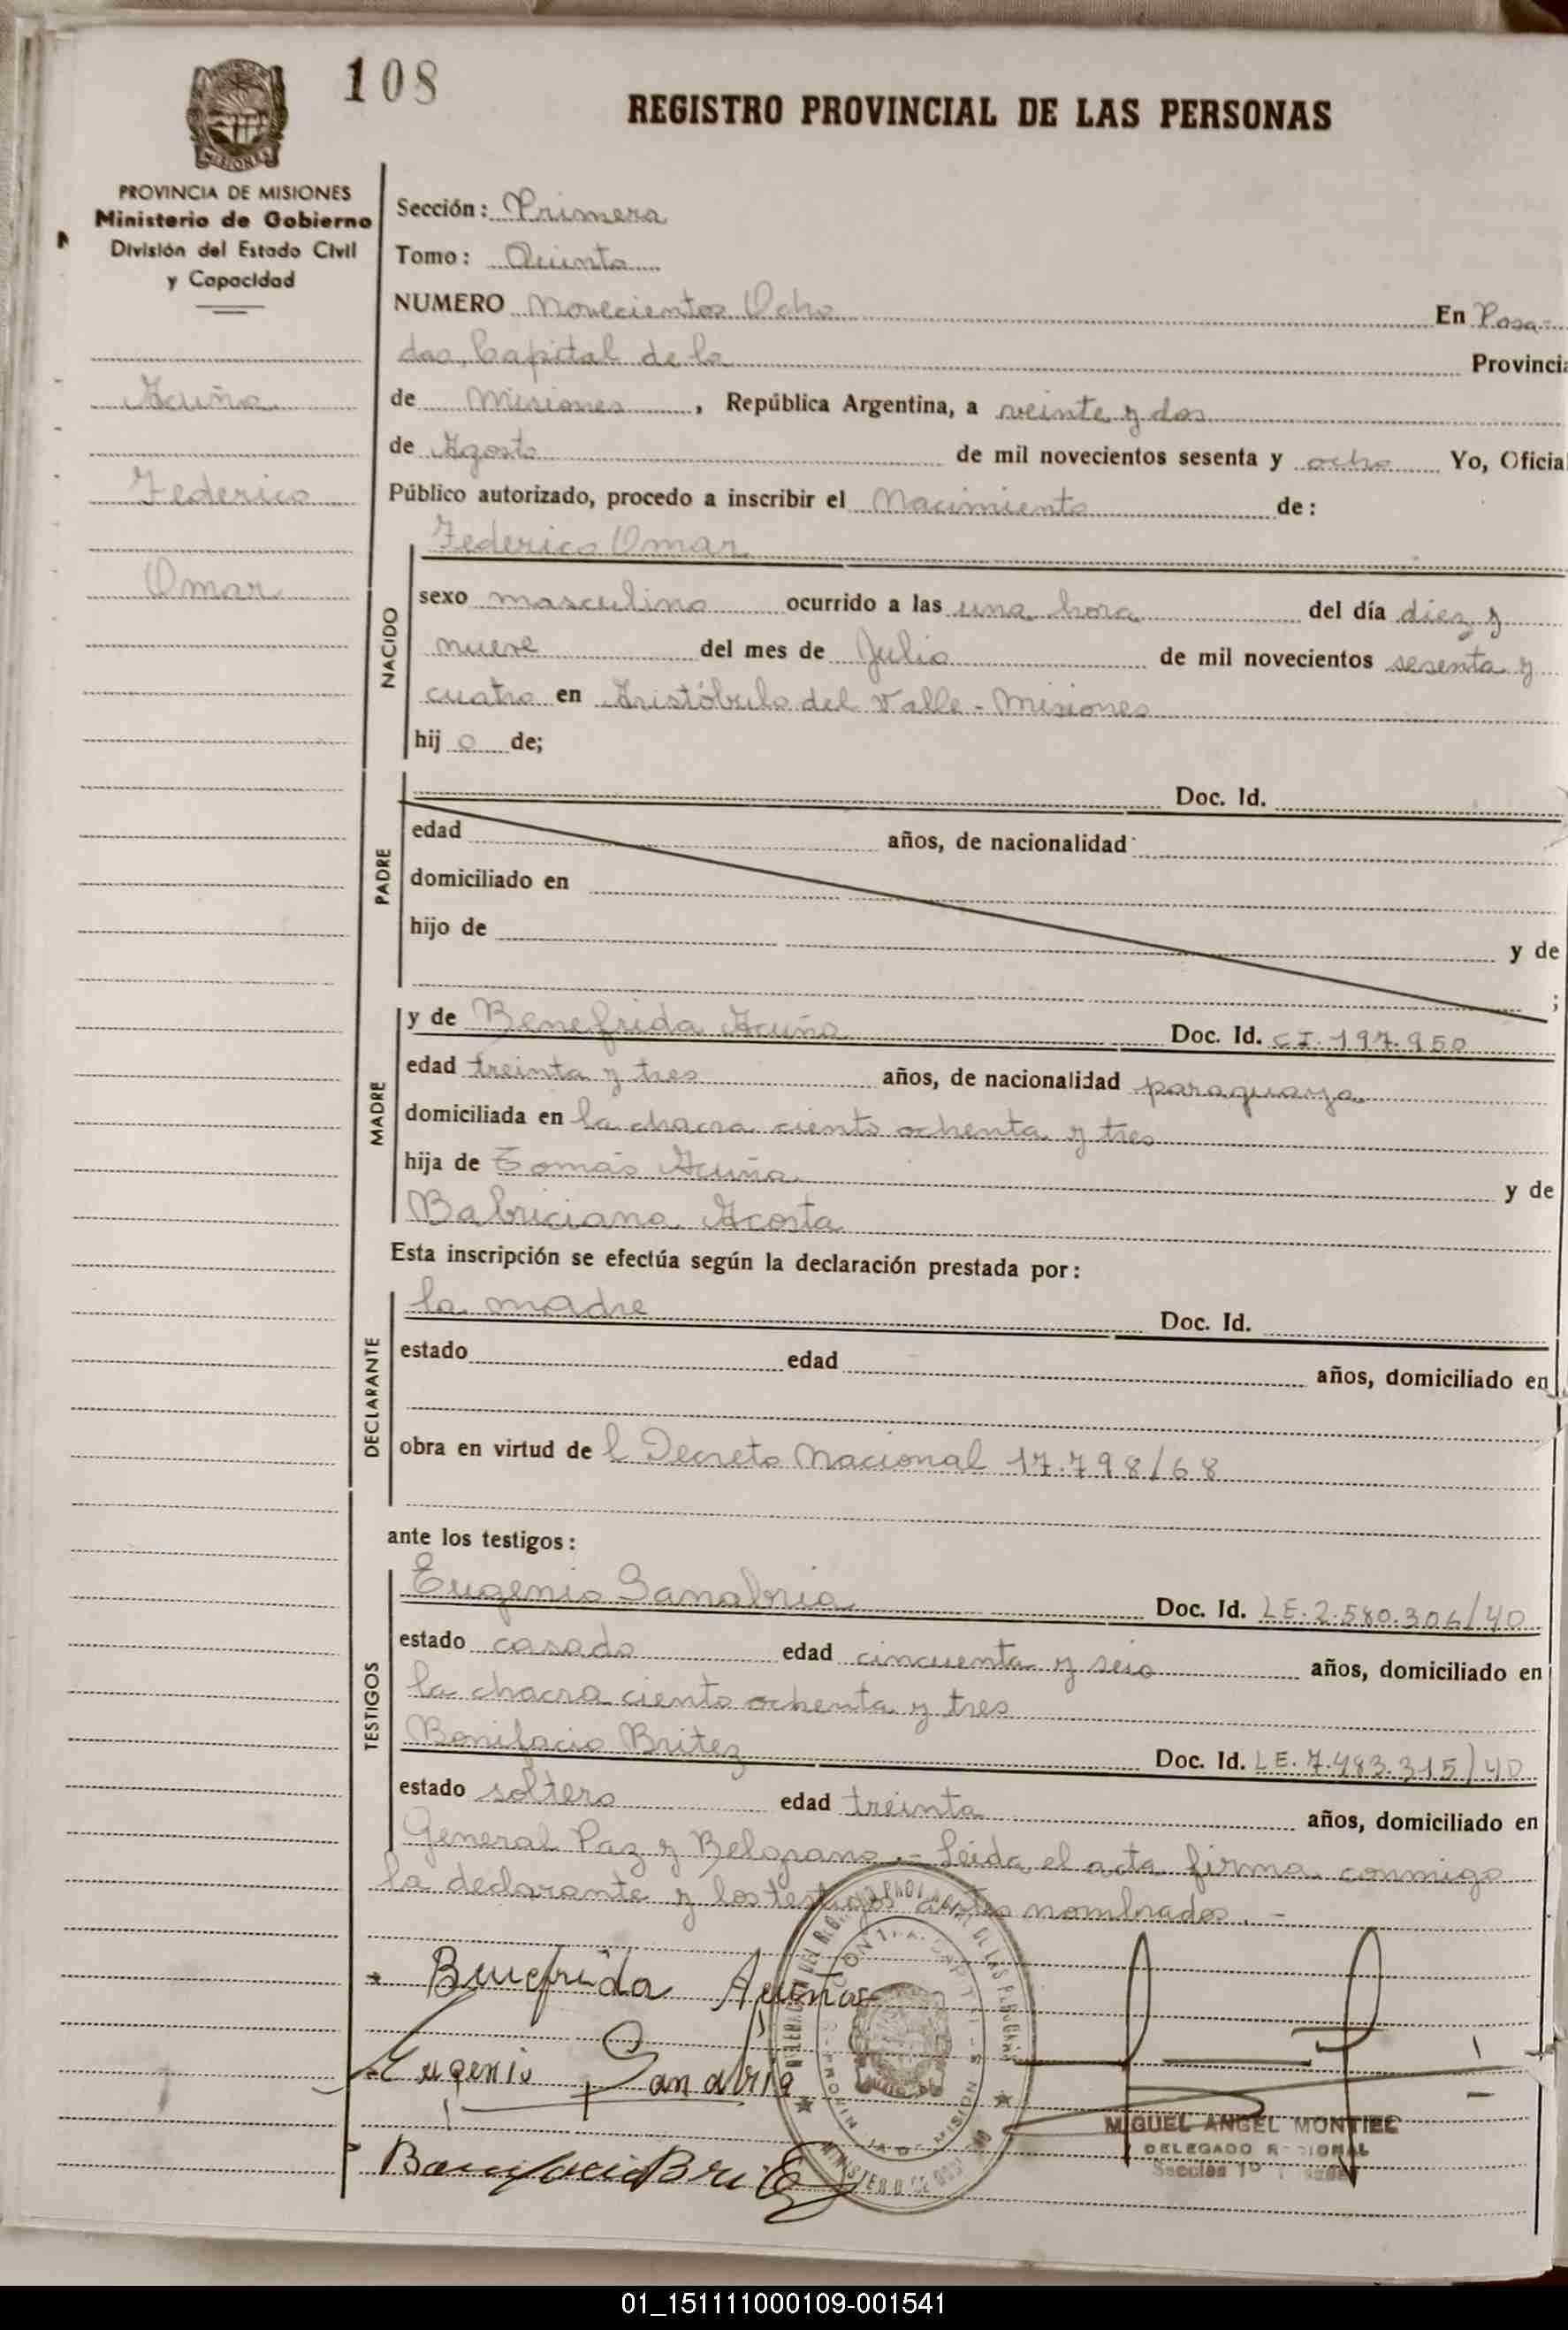 108
REGISTRO PROVINCIAL DE LAS PERSONAS
MISIONES
PROVINCIA DE MISIONES
Ministerio de Gobierno
División del Estado Civil
y Capacidad
Acuña
Federico
Omar
Sección: Primera
Tomo: Quinto
NUMERO Novecientos Ocho En Posa-
das, Capital de la Provincia
de Misiones, República Argentina, a veinte y dos
de Agosto de mil novecientos sesenta y ocho Yo, Oficial
Público autorizado, procedo a inscribir el Nacimiento de:
NACIDO
Federico Omar
sexo masculino ocurrido a las una hora del día diez y
nueve del mes de Julio de mil novecientos sesenta y
cuatro en Aristóbulo del Valle - Misiones
hij o de;
PADRE
Doc. Id.
edad años, de nacionalidad
domiciliado en
hijo de y de
;
MADRE
y de Benefrida Acuña Doc. Id. CI. 197.950
edad treinta y tres años, de nacionalidad paraguaya
domiciliada en la chacra ciento ochenta y tres
hija de Tomás Acuña y de
Babriciana Acosta
Esta inscripción se efectúa según la declaración prestada por:
DECLARANTE
la madre Doc. Id.
estado edad años, domiciliado en
obra en virtud de l Decreto Nacional 17.798/68
ante los testigos:
TESTIGOS
Eugenio Sanabria Doc. Id. LE. 2.580.306/40
estado casado edad cincuenta y seis años, domiciliado en
la chacra ciento ochenta y tres
Bonifacio Britez Doc. Id. LE. 7.483.315/40
estado soltero edad treinta años, domiciliado en
General Paz y Belgrano.- Leida el acta firma conmigo
la declarante y los testigos antes nombrados.-
Benefrida Acuña
Eugenio Sanabria
Bonifacio Britez
MIGUEL ANGEL MONTIEL
DELEGADO REGIONAL
Sección 1º
01_151111000109-001541